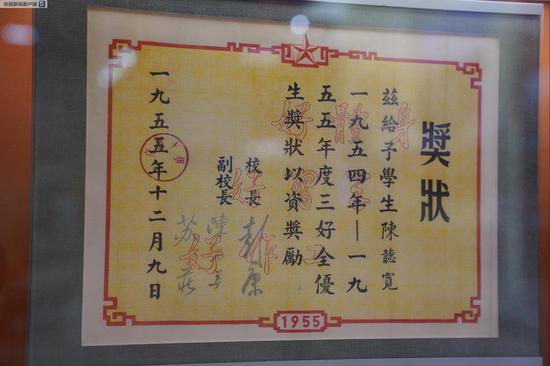 央视新闻客户端
獎狀
茲給予學生陳聽寬
一九五四年—一九
五五年度三好全優
生獎狀以資獎勵
校長 彭康
副校長
一九五五年十二月九日
身體好
學習好
工作好
1955